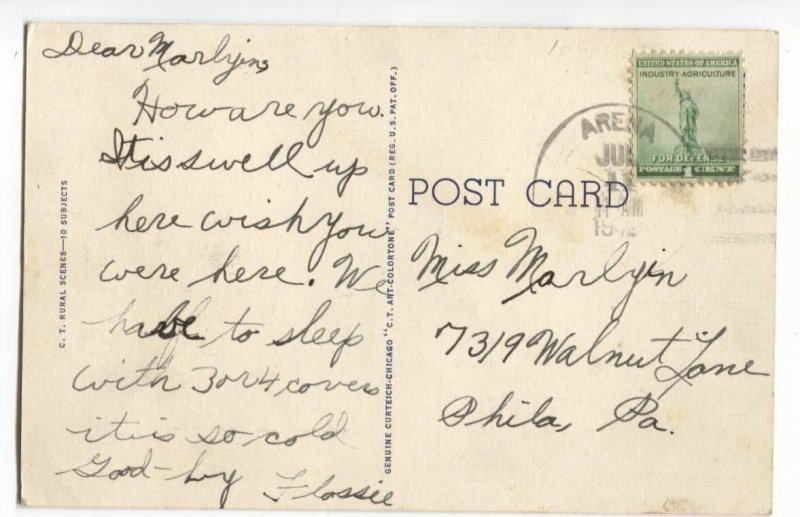 Dear Marlyn,
How are you.
It is swell up
here wish you
were here. We
have to sleep
with 3 or 4 covers
it is so cold
Good-by Flossie
C. T. RURAL SCENES—10 SUBJECTS
GENUINE CURTEICH-CHICAGO "C. T. ART-COLORTONE" POST CARD (REG. U. S. PAT. OFF.)
UNITED STATES OF AMERICA
INDUSTRY·AGRICULTURE
FOR DEFENSE
POSTAGE 1 CENT
ARENA
JUL
11 AM
POST CARD
Miss Marlyn
7319 Walnut Lane
Phila, Pa.